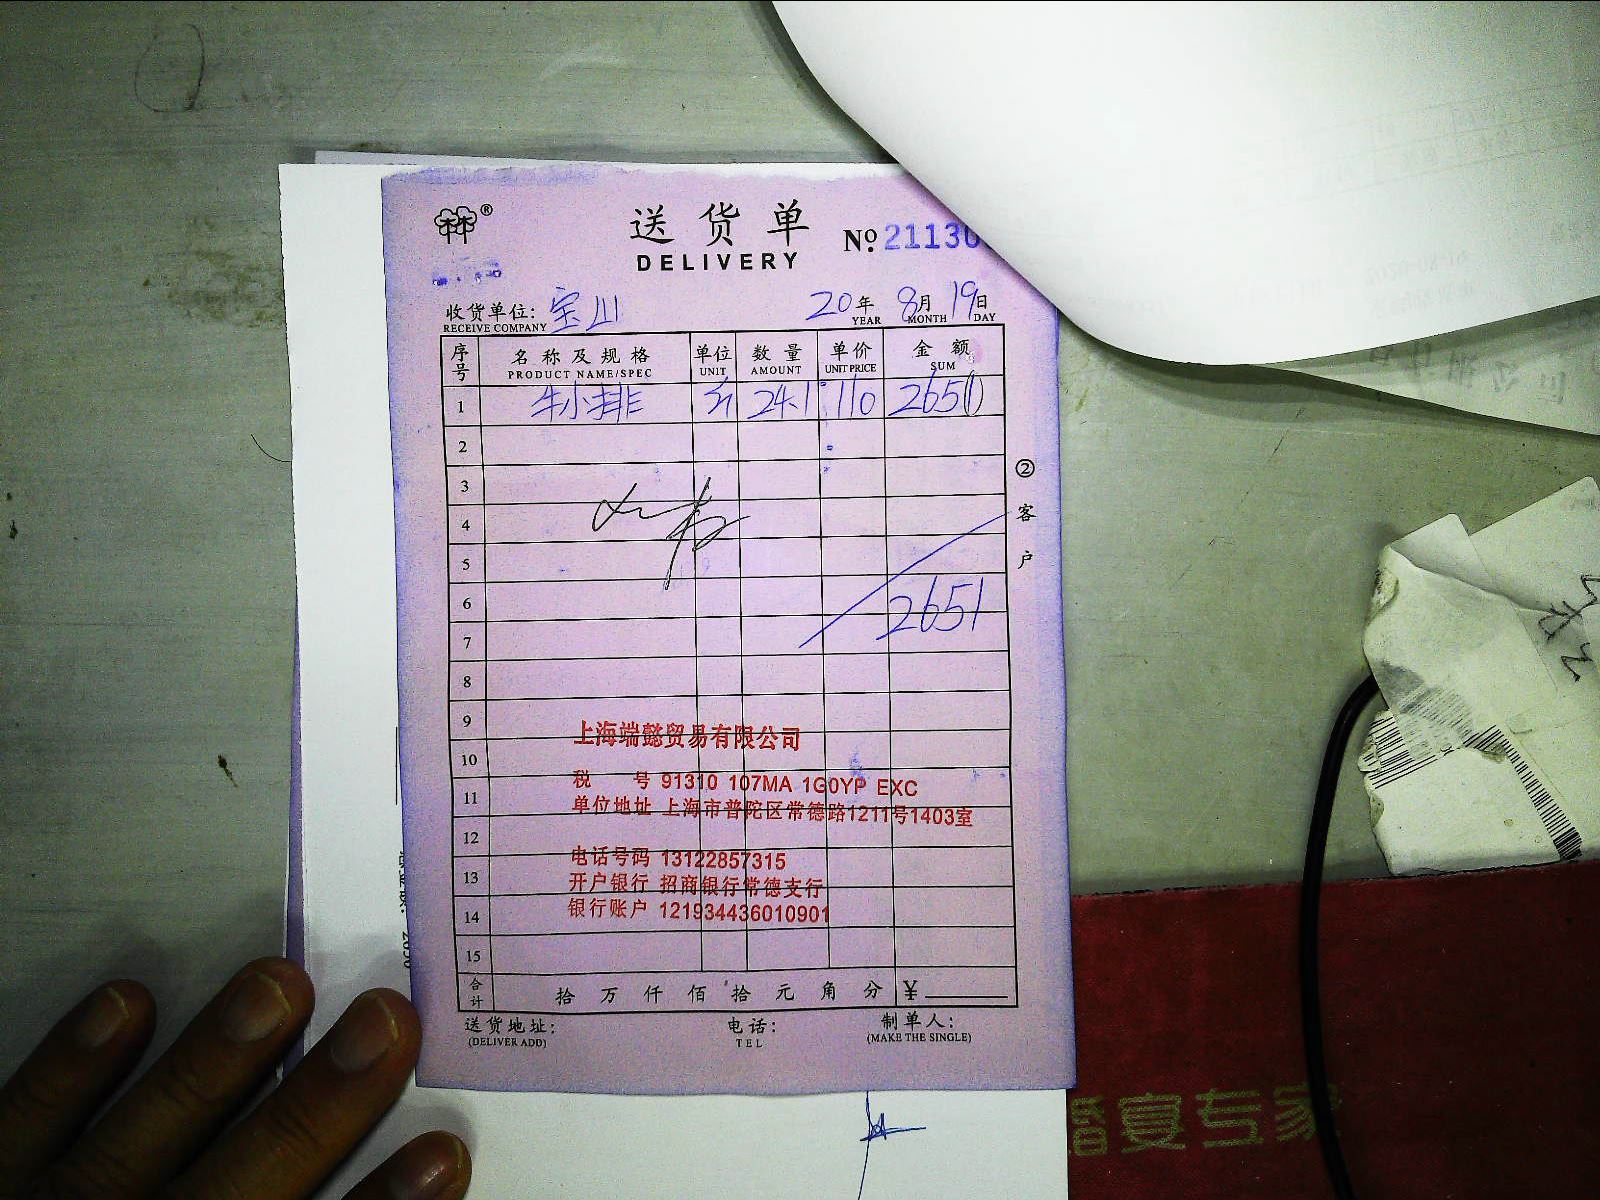 ®
送货单
DELIVERY
№ 21130
收货单位: 宝川
RECEIVE COMPANY
20年 8月 19日
YEAR MONTH DAY
序号 名称及规格 单位 数量 单价 金额
PRODUCT NAME/SPEC UNIT AMOUNT UNIT PRICE SUM
1 牛小排 斤 24.1 110 2651
2
3
4
5
6 2651
7
8
9
10
11
12
13
14
15
②客户
上海端懿贸易有限公司
税 号 91310 107MA 1G0YP EXC
单位地址 上海市普陀区常德路1211号1403室
电话号码 13122857315
开户银行 招商银行常德支行
银行账户 121934436010901
合计 拾 万 仟 佰 拾 元 角 分 ¥
送货地址: 电话: 制单人:
(DELIVER ADD) TEL (MAKE THE SINGLE)
婚宴专家